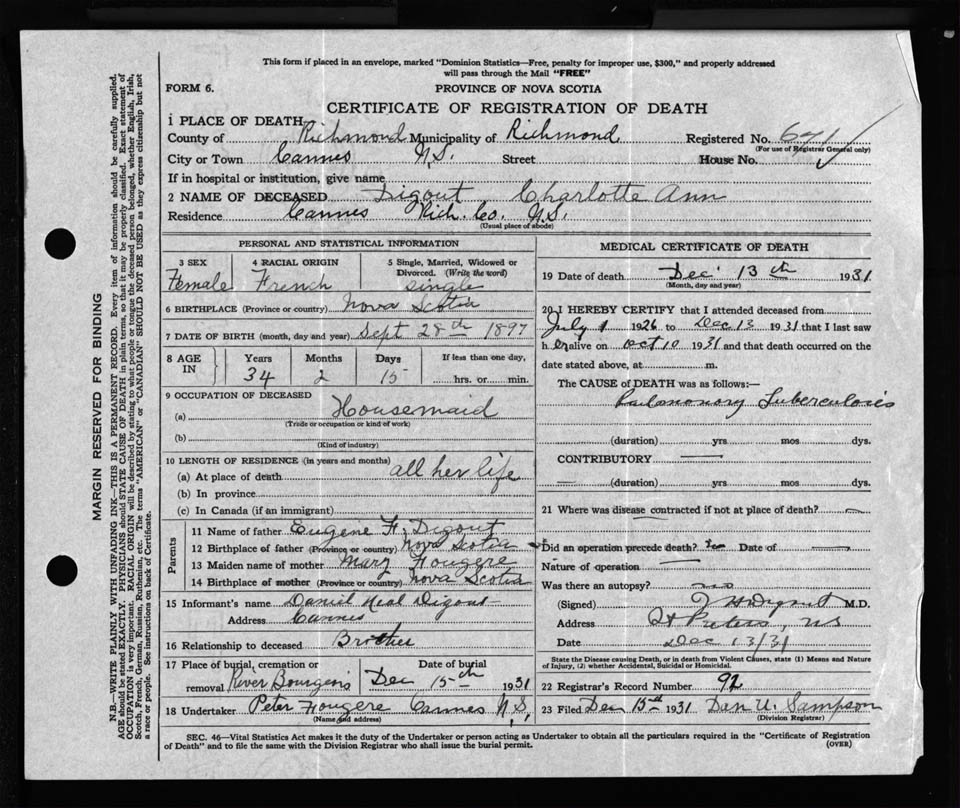 This form if placed in an envelope, marked "Dominion Statistics—Free, penalty for improper use, $300," and properly addressed
will pass through the Mail "FREE"
FORM 6. PROVINCE OF NOVA SCOTIA
CERTIFICATE OF REGISTRATION OF DEATH
1 PLACE OF DEATH
County of Richmond Municipality of Richmond Registered No. 671
(For use of Registrar General only)
City or Town Cannes N.S. Street House No.
If in hospital or institution, give name
2 NAME OF DECEASED Digout Charlotte Ann
Residence Cannes Rich. Co. N.S.
(Usual place of abode)
PERSONAL AND STATISTICAL INFORMATION
3 SEX 4 RACIAL ORIGIN 5 Single, Married, Widowed or
Divorced. (Write the word)
Female French single
6 BIRTHPLACE (Province or country) Nova Scotia
7 DATE OF BIRTH (month, day and year) Sept 28th 1897
8 AGE IN Years Months Days If less than one day,
34 2 15 hrs. or min.
9 OCCUPATION OF DECEASED
(a) Housemaid
(Trade or occupation or kind of work)
(b)
(Kind of industry)
10 LENGTH OF RESIDENCE (in years and months)
(a) At place of death all her life
(b) In province
(c) In Canada (if an immigrant)
Parents
11 Name of father Eugene F. Digout
12 Birthplace of father (Province or country) Nova Scotia
13 Maiden name of mother Mary Fougere
14 Birthplace of mother (Province or country) Nova Scotia
15 Informant's name Daniel Neal Digout
Address Cannes
16 Relationship to deceased Brother
17 Place of burial, cremation or Date of burial
removal River Bourgeois Dec 15th 1931
18 Undertaker Peter Fougere Cannes N.S.
(Name and address)
MEDICAL CERTIFICATE OF DEATH
19 Date of death Dec 13th 1931
(Month, day and year)
20 I HEREBY CERTIFY that I attended deceased from
July 1 1926 to Dec 13 1931 that I last saw
her alive on Oct 10 1931 and that death occurred on the
date stated above, at m.
The CAUSE of DEATH was as follows:—
Pulmonary Tuberculosis
(duration) yrs mos dys.
CONTRIBUTORY
(duration) yrs mos dys.
21 Where was disease contracted if not at place of death?
Did an operation precede death? Date of
Nature of operation
Was there an autopsy? no
(Signed) M.D.
Address St Peters, NS
Date Dec 13/31
State the Disease causing Death, or in death from Violent Causes, state (1) Means and Nature
of Injury, (2) whether Accidental, Suicidal or Homicidal.
22 Registrar's Record Number 92
23 Filed Dec 15th 1931 Dan U. Sampson
(Division Registrar)
SEC. 46—Vital Statistics Act makes it the duty of the Undertaker or person acting as Undertaker to obtain all the particulars required in the "Certificate of Registration
of Death" and to file the same with the Division Registrar who shall issue the burial permit. (OVER)
MARGIN RESERVED FOR BINDING
N.B.—WRITE PLAINLY WITH UNFADING INK—THIS IS A PERMANENT RECORD. Every item of information should be carefully supplied.
AGE should be stated EXACTLY. PHYSICIANS should STATE CAUSE OF DEATH in plain terms, so that it may be properly classified. Exact statement of
OCCUPATION is very important. RACIAL ORIGIN will be described by stating to what people or tongue the deceased person belonged, whether English, Irish,
Scotch, French, German, Russian, Ruthenian, etc. The terms "AMERICAN" or "CANADIAN" SHOULD NOT BE USED as they express citizenship but not
a race or people. See instructions on back of Certificate.